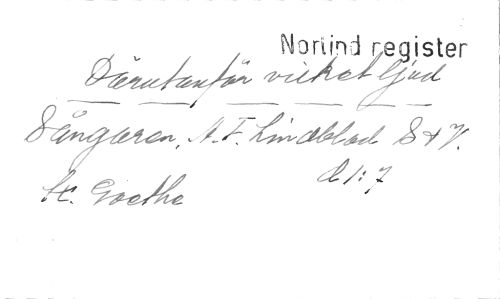 Norlind register
Därutanför vilket ljud
Sångaren, A. F. Lindblad S & V.
d 1:7
H. Goethe